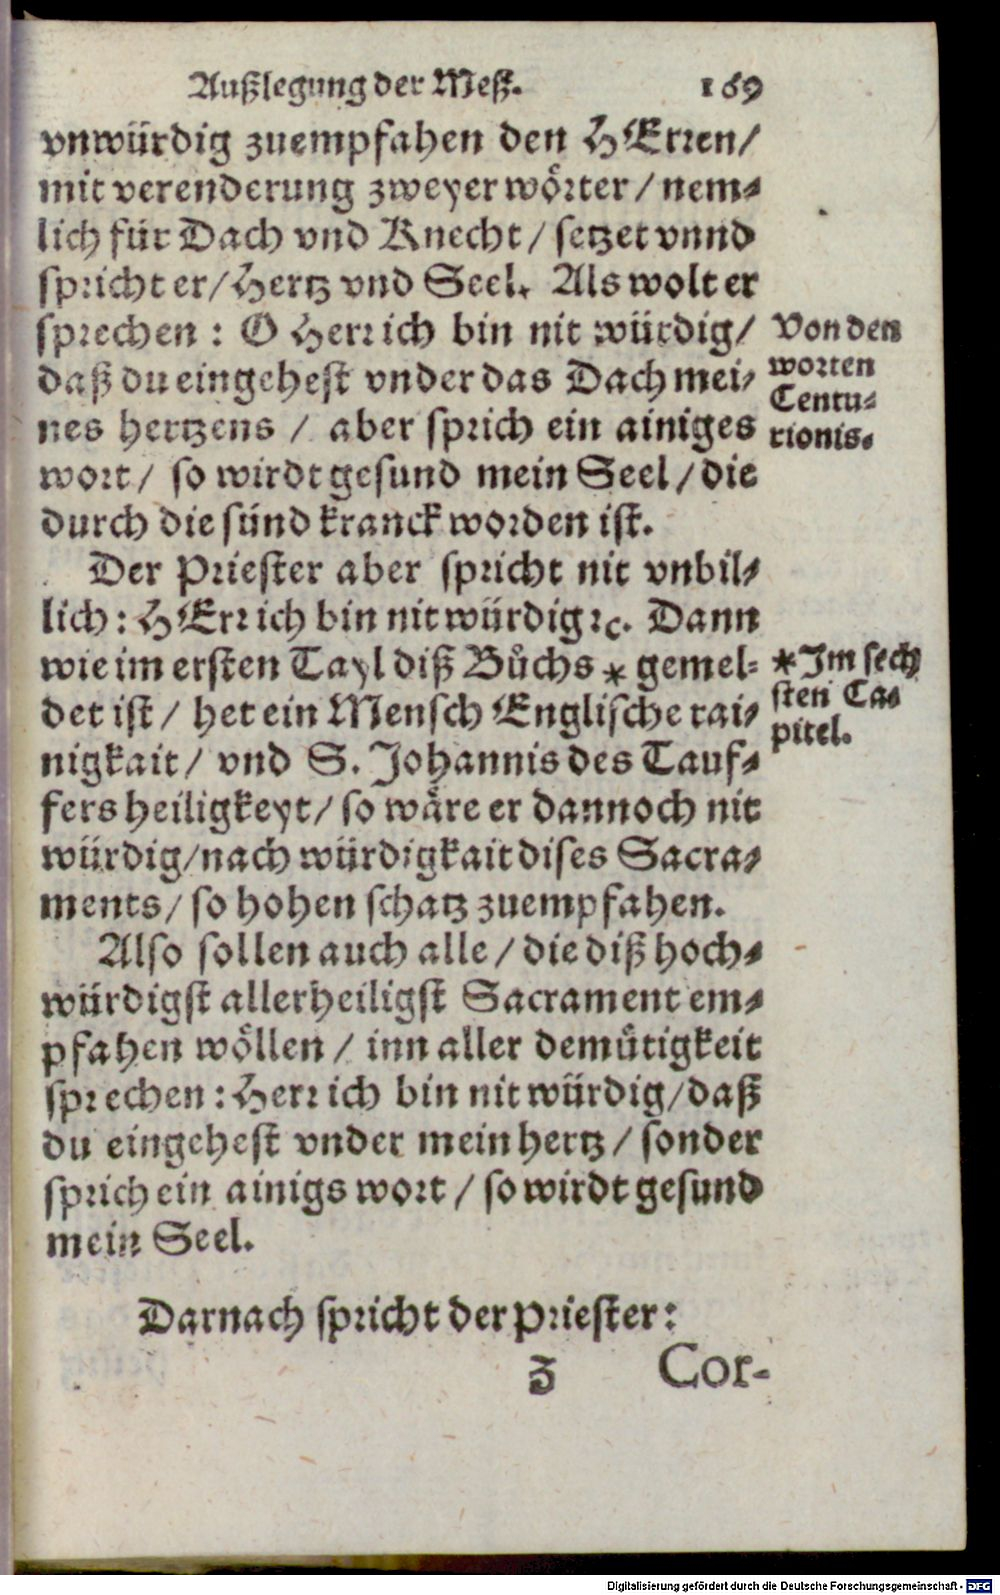 Außlegung der Meß. 169
vnwürdig zuempfahen den HErren/
mit verenderung zweyer wörter / nem⸗
lich für Dach vnd Knecht / setzet vnnd
spricht er / Hertz vnd Seel. Als wolt er
sprechen : O Herr ich bin nit würdig/
daß du eingehest vnder das Dach mei⸗
nes hertzens / aber sprich ein ainiges
wort / so wirdt gesund mein Seel / die
durch die sünd kranck worden ist.
Von den
worten
Centu⸗
rionis.
Der Priester aber spricht nit vnbil⸗
lich : HErr ich bin nit würdig ꝛc. Dann
wie im ersten Tayl diß Bůchs * gemel⸗
det ist / het ein Mensch Englische rai⸗
nigkait / vnd S. Johannis des Tauf⸗
fers heiligkeyt / so wäre er dannoch nit
würdig / nach würdigkait dises Sacra⸗
ments / so hohen schatz zuempfahen.
* Im sech
sten Ca⸗
pitel.
Also sollen auch alle / die diß hoch⸗
würdigst allerheiligst Sacrament em⸗
pfahen wöllen / inn aller demütigkeit
sprechen : Herr ich bin nit würdig / daß
du eingehest vnder mein hertz / sonder
sprich ein ainigs wort / so wirdt gesund
mein Seel.
Darnach spricht der Priester:
Z Cor-
Digitalisierung gefördert durch die Deutsche Forschungsgemeinschaft - DFG